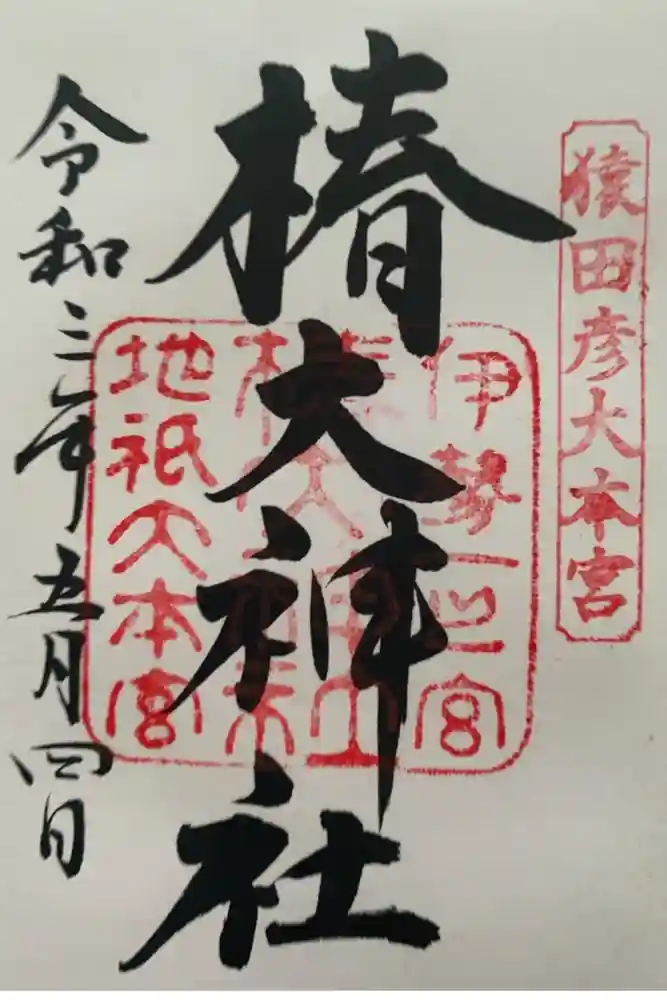 猿田彦大本宮
椿大神社
伊勢一之宮
椿大神社
地祇大本宮
令和三年五月四日